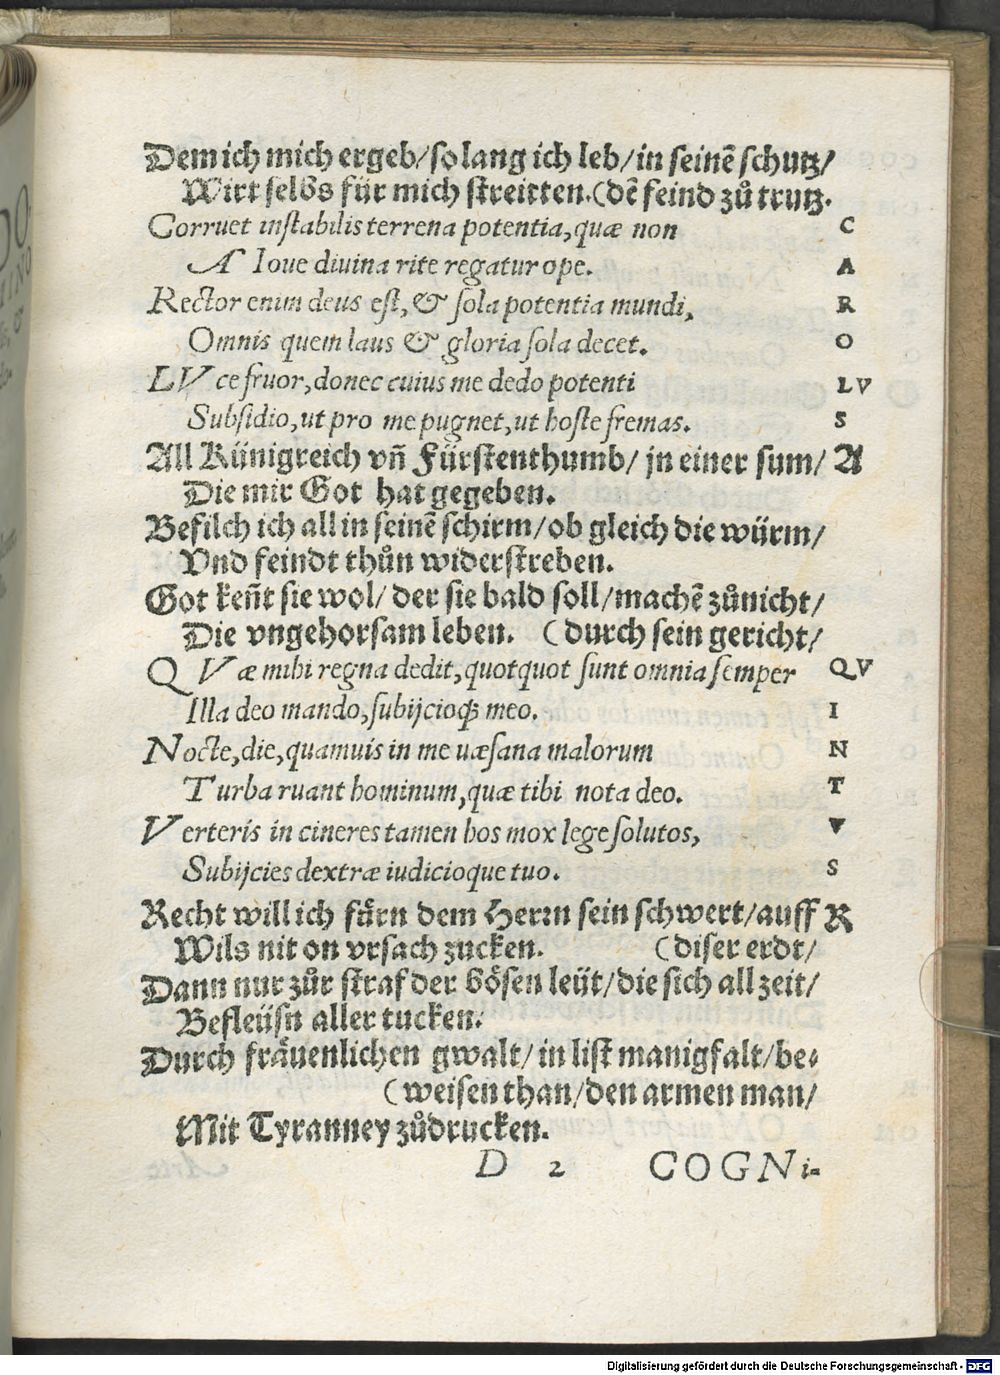 Dem ich mich ergeb/so lang ich leb/in seinē schutz/
Wirt selbs für mich streitten.(dē feind zů trutz.
Corruet instabilis terrena potentia,quæ non C
A Ioue diuina rite regatur ope. A
Rector enim deus est,& sola potentia mundi, R
Omnis quem laus & gloria sola decet. O
LVce fruor,donec cuius me dedo potenti LV
Subsidio,ut pro me pugnet,ut hoste fremas. S
All Künigreich vñ Fürstenthumb/ jn einer sum/ A
Die mir Got hat gegeben.
Befilch ich all in seinē schirm/ob gleich die würm/
Vnd feindt thůn widerstreben.
Got keñt sie wol/ der sie bald soll/machē zůnicht/
Die vngehorsam leben. (durch sein gericht/
QVæ mihi regna dedit,quotquot sunt omnia semper QV
Illa deo mando,subijcioq̃ meo. I
Nocte,die,quamuis in me uæsana malorum N
Turba ruant hominum,quæ tibi nota deo. T
Verteris in cineres tamen hos mox lege solutos, V
Subijcies dextræ iudicioque tuo. S
Recht will ich fürn dem Herrn sein schwert/auff R
Wils nit on vrsach zucken. (diser erdt/
Dann nur zůr straf der bösen leüt/die sich all zeit/
Befleüsn aller tucken.
Durch fräuenlichen gwalt/in list manigfalt/be-
(weisen than/den armen man/
Mit Tyranney zůdrucken.
D 2 COGNi-
Digitalisierung gefördert durch die Deutsche Forschungsgemeinschaft - DFG